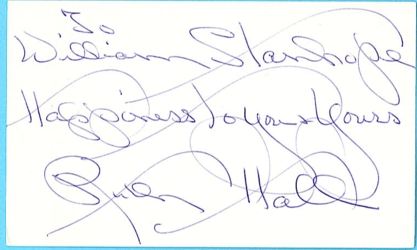 To
William Stanhope
Happiness to You & Yours
Hall